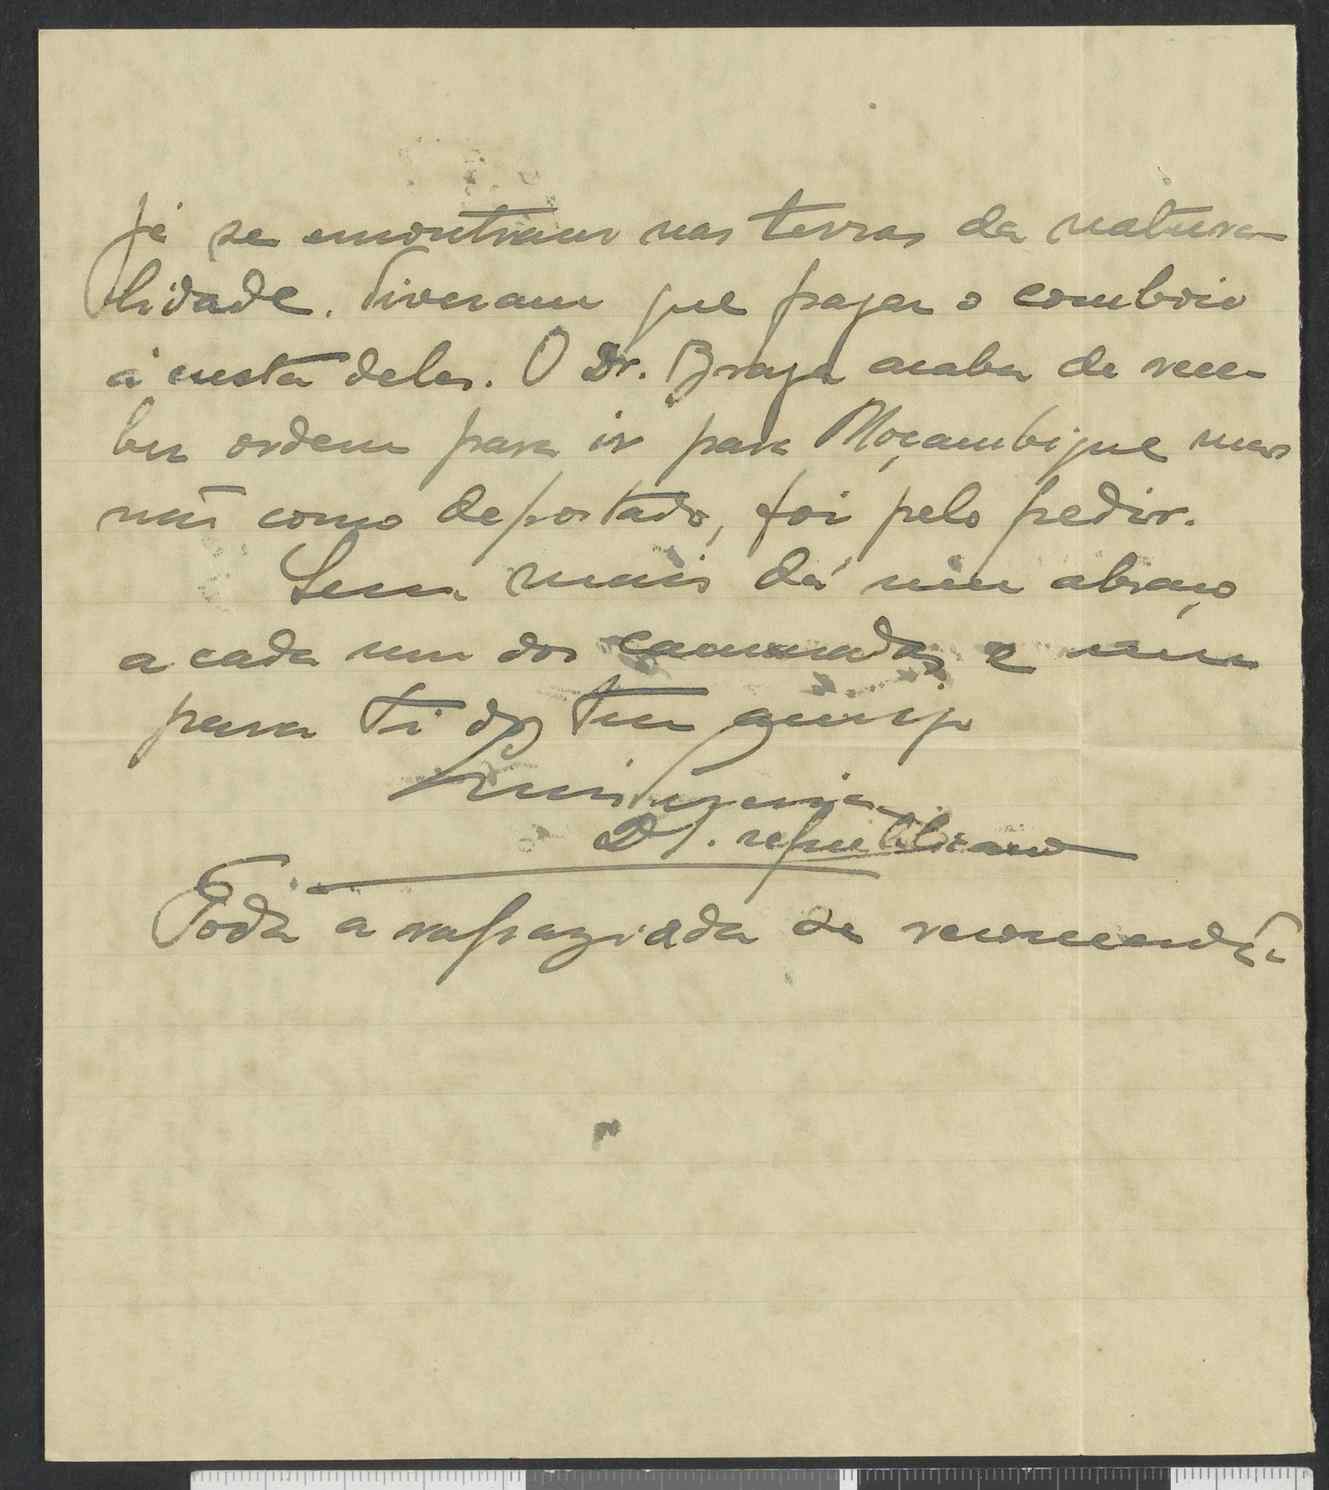 já se encontram nas terras da natura-
lidade. Tiveram que pagar o comboio
á custa deles. O Dr. Braga acaba de rece-
ber ordem para ir para Moçambique mas
não como deportado, foi pelo pedir.
Sem mais dá um abraço
a cada um dos camaradas e um
para ti do teu amigo
Luis
D. republicano
Toda a rapaziada se recomenda